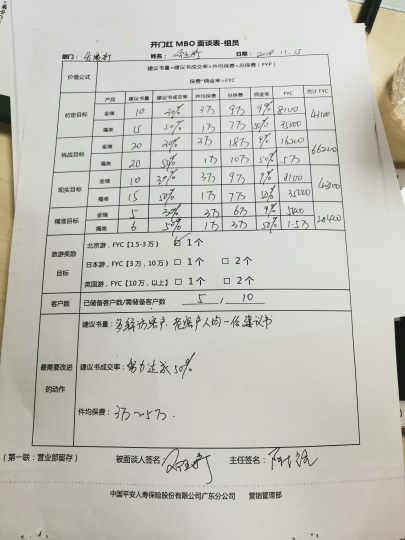 开门红 MBO 面谈表-组员
部门： 姓名： 2018.11.15
价值公式 建议书量*建议书成交率*件均保费=总保费（FYP）
保费*佣金率=FYC
产品 建议书量 建议书成交率 件均保费 总保费 佣金率 FYC 合计 FYC
初定目标 金瑞 10 30% 3万 9万 9% 8100 43100
福类 15 50% 1万 7万 50% 35000
挑战目标 金瑞 20 30% 3万 18万 9% 16200 66200
福类 20 50% 1万 10万 50% 5万
现实目标 金瑞 10 30% 3万 9万 9% 8100 43100
福类 15 50% 1万 7万 50% 35000
精准目标 金瑞 5 3万 6万 9% 5400 20400
福类 6 50% 1万 3万 50% 1.5万
旅游奖励目标 北京游，FYC【1.5-3万】 ☑ 1个
日本游，FYC【3万，10万】 □ 1个 □ 2个
英国游，FYC【10万，以上】 □ 1个 □ 2个
客户数 已储备客户数/需储备客户数 5 / 10
最需要改进的动作 建议书量：多经访客户，老客户人均一份建议书
建议书成交率：努力达成50%
件均保费：3万~5万.
（第一联：营业部留存） 被面谈人签名： 主任签名：
中国平安人寿保险股份有限公司广东分公司 营销管理部